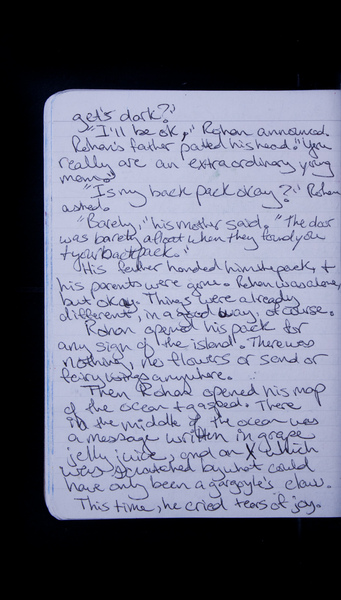 get's dark?"
"I'll be ok," Rohan announced.
Rohan's father patted his head. "You
really are an extraordinary young
man."
"Is my back pack okay?" Rohan
asked.
"Barely," his mother said. "The door
was barely afloat when they found you
+ your backpack."
His father handed him the pack, +
his parents were gone. Rohan was alone,
but okay. Things were already
different, in a good way, of course.
Rohan opened his pack for
any sign of the island. There was
nothing, no flowers or sand or
fairy wings anywhere.
Then Rohan opened his map
of the ocean + gasped. There
in the middle of the ocean was
a message written in grape
jelly juice, and an X which
was scratched by what could
have only been a gargoyle's claw.
This time, he cried tears of joy.